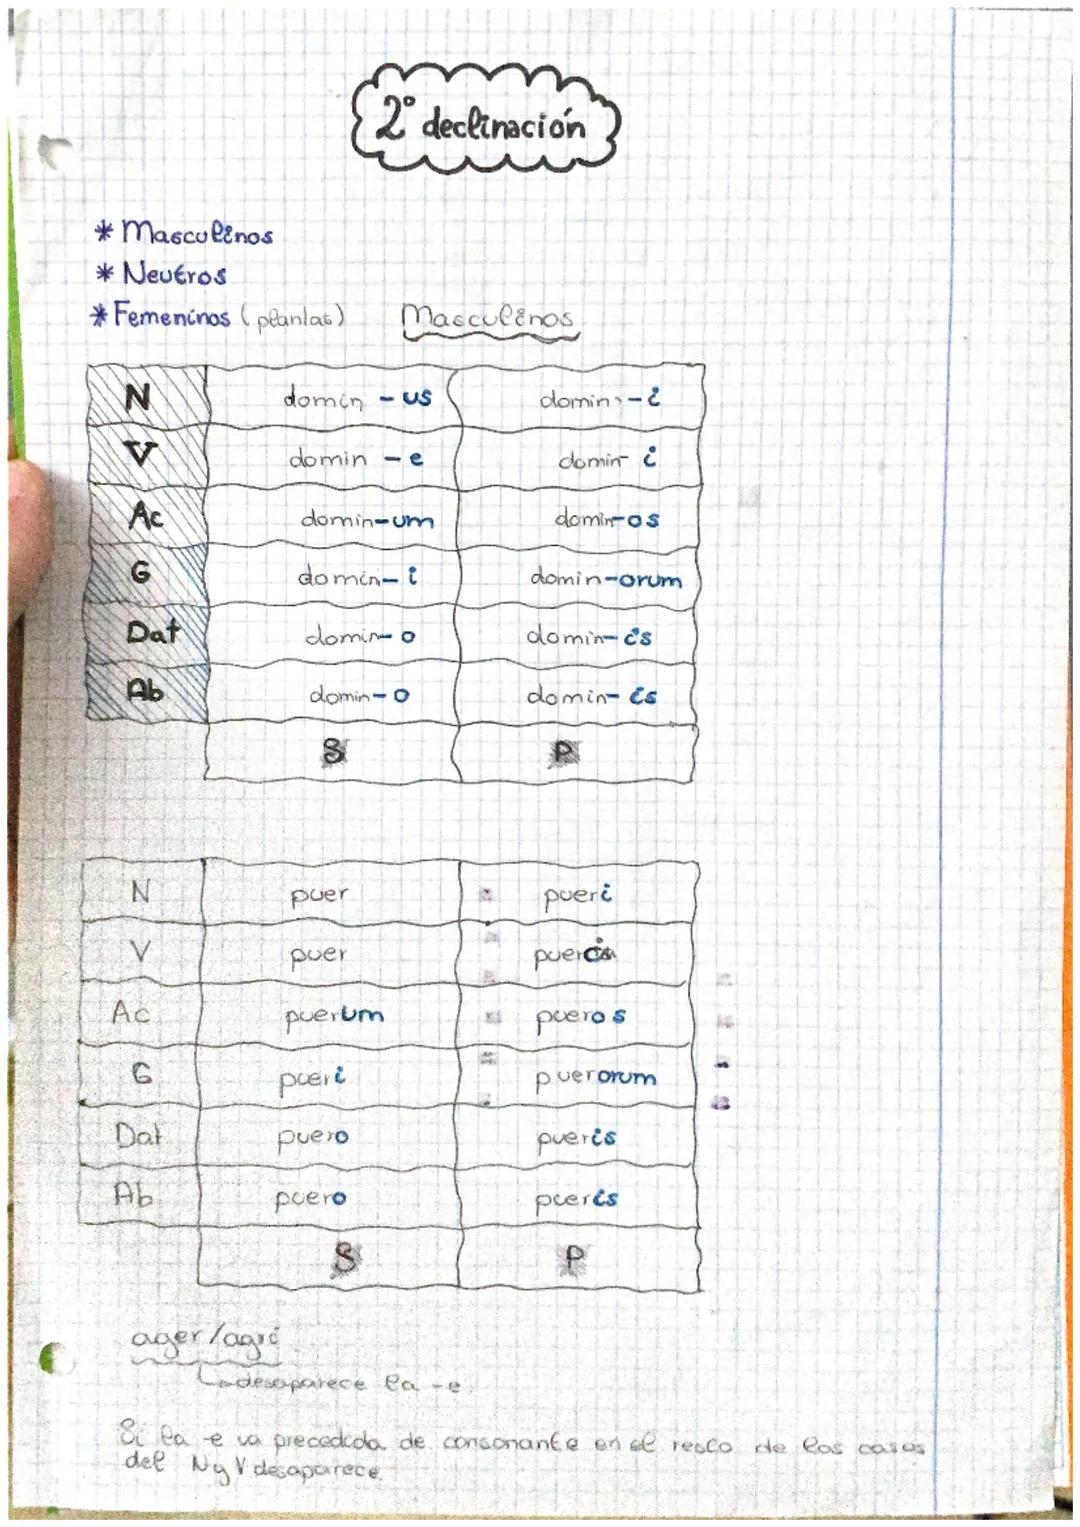 2º declinación
* Masculinos
* Neutros
* Femeninos (plantas) Masculinos
N domin - us domin - i
V domin - e domin i
Ac domin-um domin-os
G domin- i domin-orum
Dat domin- o domin- is
Ab domin- o domin- is
S P
N puer pueri
V puer
Ac puerum pueros
G pueri puerorum
Dat puero pueris
Ab puero pueris
S P
ager/agri
desaparece la -e
Si la -e va precedida de consonante en el resto de los casos
del N y V desaparece.